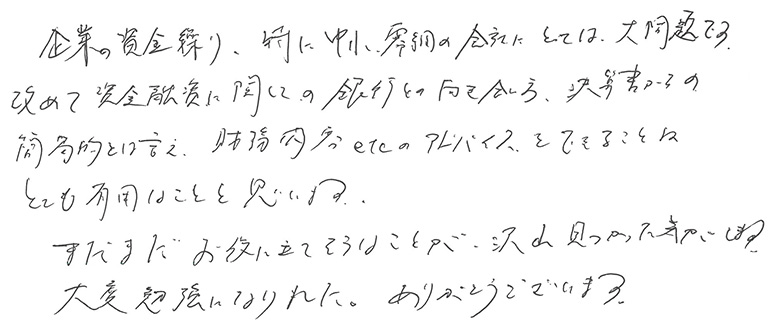 企業の資金繰り、特に中小、零細の会社にとっては、大問題です。
改めて資金融資に関しての銀行との向き合い方、決算書からの
簡易的とは言え、財務内容etcのアドバイスをできることは
とても有用なことと思います。
まだまだお役に立てそうなことが、沢山見つかった気がします。
大変勉強になりました。ありがとうございます。